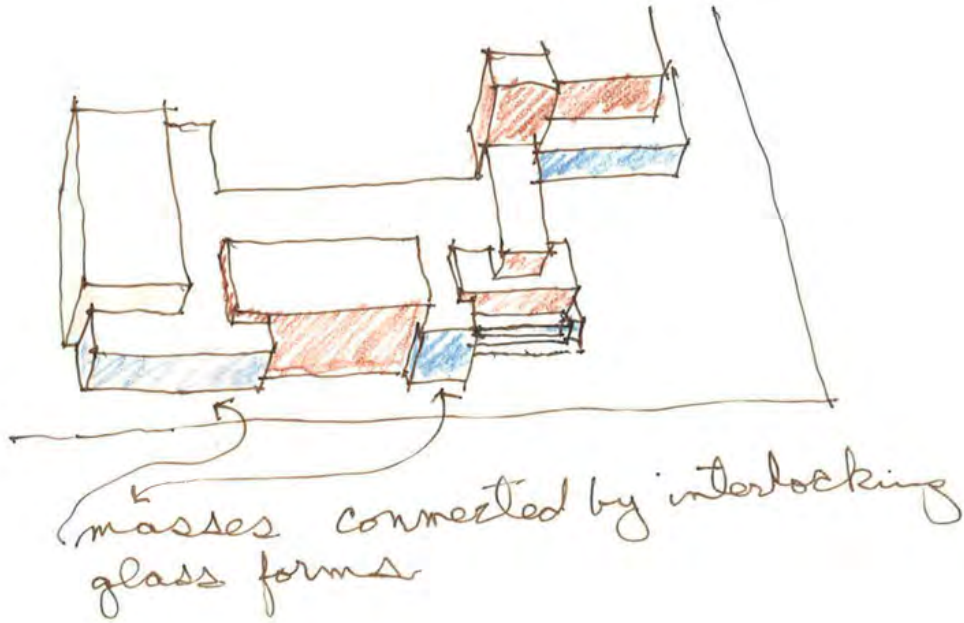 masses connected by interlocking
glass forms